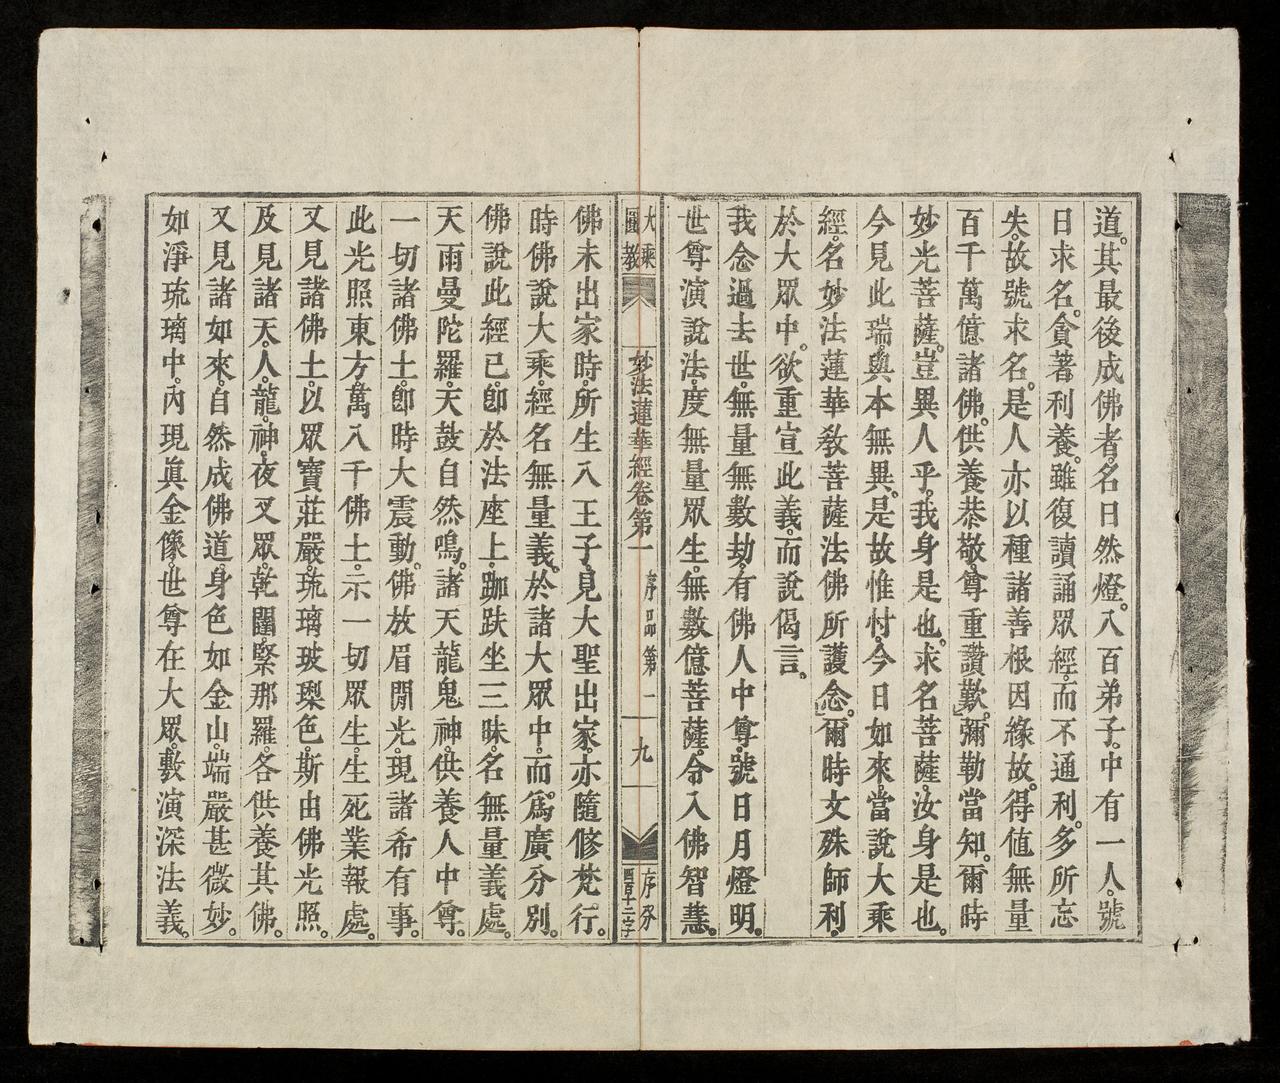 道。其最後成佛者。名曰然燈。八百弟子。中有一人。號
曰求名。貪著利養。雖復讀誦眾經。而不通利。多所忘
失。故號求名。是人亦以種諸善根因緣故。得值無量
百千萬億諸佛。供養恭敬。尊重讚歎。彌勒當知。爾時
妙光菩薩。豈異人乎。我身是也。求名菩薩。汝身是也。
今見此瑞。與本無異。是故惟忖。今日如來。當說大乘
經。名妙法蓮華教菩薩法佛所護念。爾時文殊師利。
於大眾中。欲重宣此義。而說偈言。
我念過去世。無量無數劫。有佛人中尊。號日月燈明。
世尊演說法。度無量眾生。無數億菩薩。令入佛智慧。
大乘
圓教
妙法蓮華經卷第一
序品第一
九
序分
佛未出家時。所生八王子。見大聖出家。亦隨修梵行。
時佛說大乘。經名無量義。於諸大眾中。而爲廣分別。
佛說此經已。卽於法座上。跏趺坐三昧。名無量義處。
天雨曼陀羅。天鼓自然鳴。諸天龍鬼神。供養人中尊。
一切諸佛土。卽時大震動。佛放眉閒光。現諸希有事。
此光照東方。萬八千佛土。示一切眾生。生死業報處。
又見諸佛土。以眾寶莊嚴。琉璃玻瓈色。斯由佛光照。
及見諸天人。龍。神。夜叉眾。乾闥。緊那羅。各供養其佛。
又見諸如來。自然成佛道。身色如金山。端嚴甚微妙。
如淨琉璃中。內現眞金像。世尊在大眾。敷演深法義。